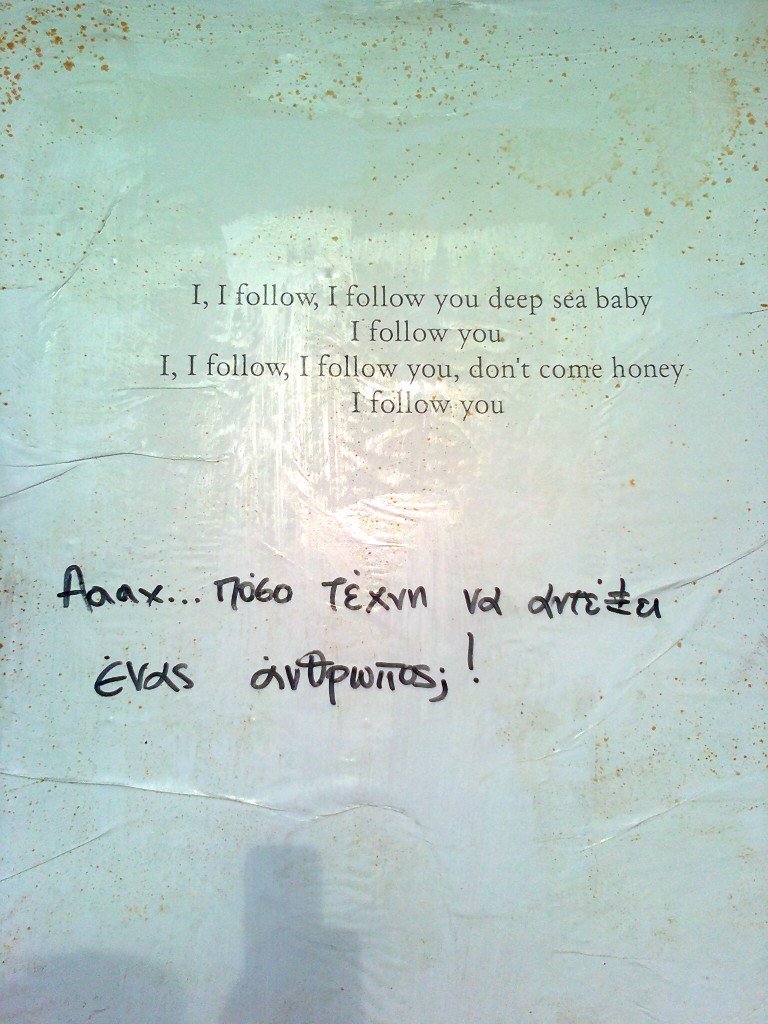 I, I follow, I follow you deep sea baby
I follow you
I, I follow, I follow you, don't come honey
I follow you
Αααχ... πόσο τέχνη να αντέξει
ένας άνθρωπος; !